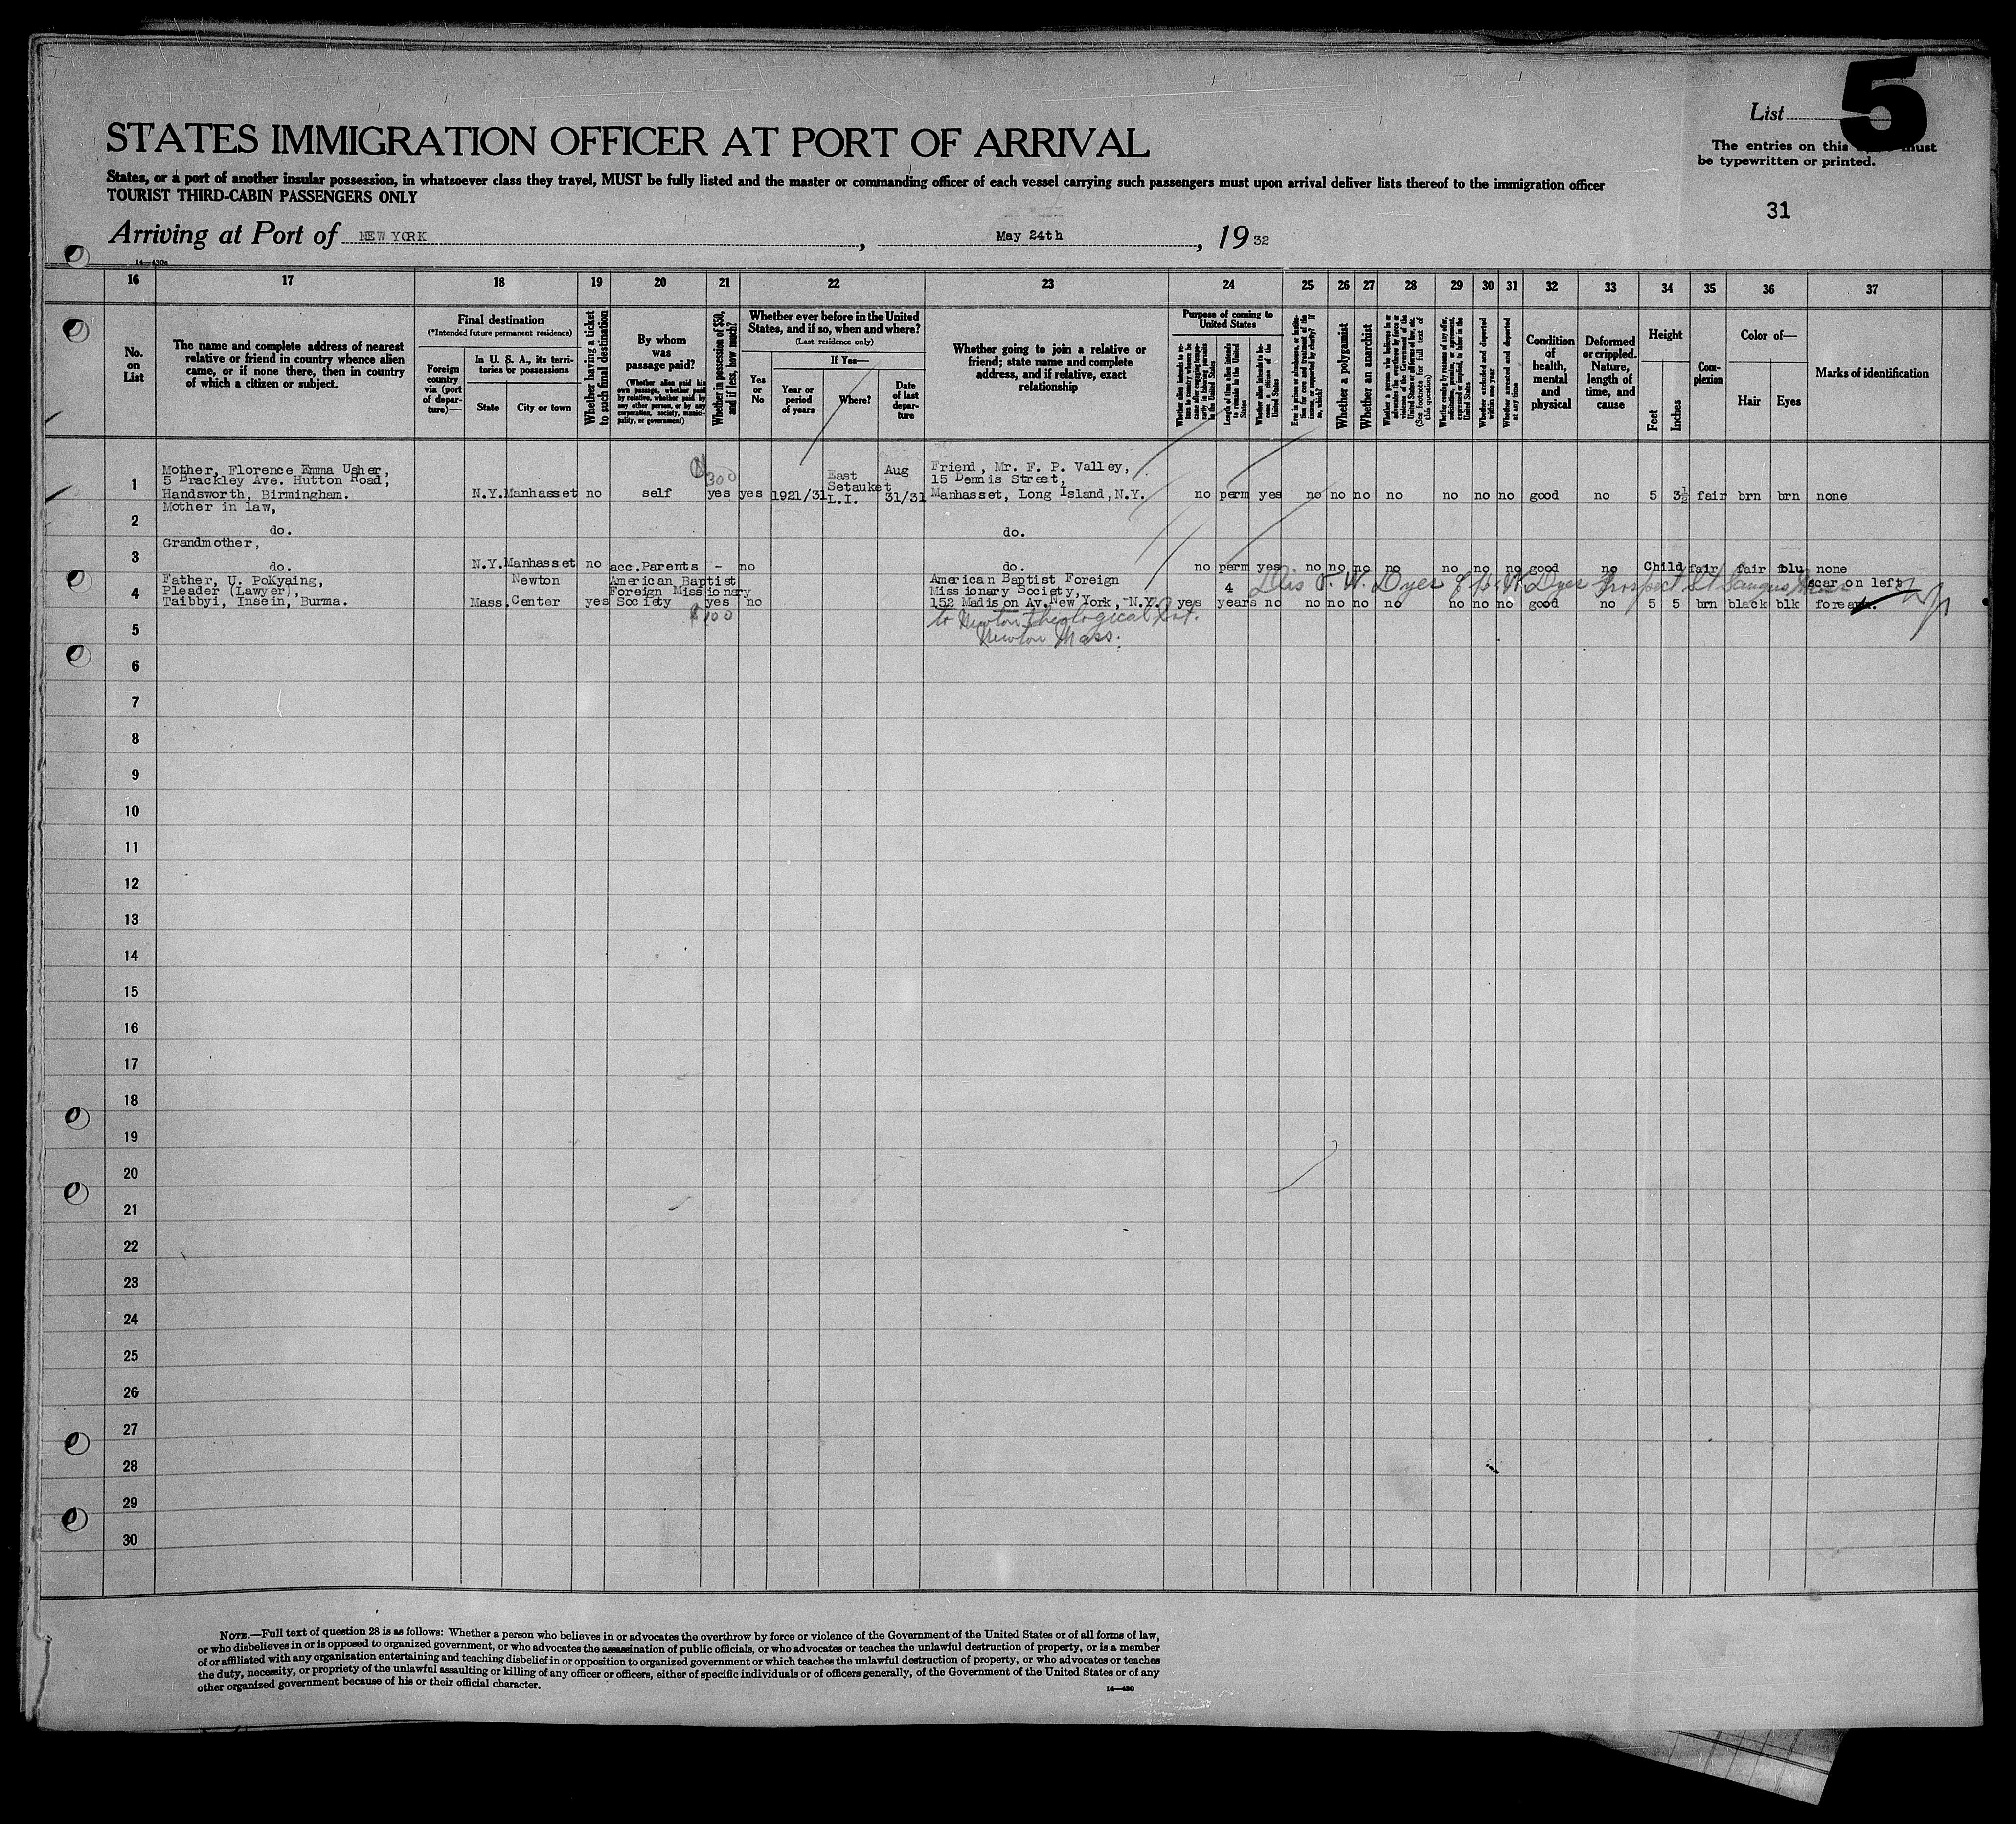 5
List
The entries on this must
be typewritten or printed.
STATES IMMIGRATION OFFICER AT PORT OF ARRIVAL
States, or a port of another insular possession, in whatsoever class they travel, MUST be fully listed and the master or commanding officer of each vessel carrying such passengers must upon arrival deliver lists thereof to the immigration officer
TOURIST THIRD-CABIN PASSENGERS ONLY
31
Arriving at Port of NEW YORK, May 24th, 19 32
14—430a
16 17 18 19 20 21 22 23 24 25 26 27 28 29 30 31 32 33 34 35 36 37
No. on List
The name and complete address of nearest relative or friend in country whence alien came, or if none there, then in country of which a citizen or subject.
Final destination
(*Intended future permanent residence)
Foreign country via (port of departure)—
In U. S. A., its territories or possessions
State
City or town
Whether having a ticket to such final destination
By whom was passage paid?
(Whether alien paid his own passage, whether paid by relative, whether paid by any other person, or by any corporation, society, municipality, or government)
Whether in possession of $50, and if less, how much?
Whether ever before in the United States, and if so, when and where?
(Last residence only)
Yes or No
If Yes—
Year or period of years
Where?
Date of last departure
Whether going to join a relative or friend; state name and complete address, and if relative, exact relationship
Purpose of coming to United States
Length of time alien intends to remain in the United States
Whether alien intends to become a citizen of the United States
Whether a polygamist
Whether an anarchist
Whether excluded and deported within one year
Whether arrested and deported at any time
Condition of health, mental and physical
Deformed or crippled. Nature, length of time, and cause
Height
Feet
Inches
Complexion
Color of—
Hair
Eyes
Marks of identification
1 Mother, Florence Emma Usher,
5 Brackley Ave. Hutton Road,
Handsworth, Birmingham.
N.Y. Manhasset no self 300 yes yes 1921/31 East Setauket L.I. Aug 31/31
Friend, Mr. F. P. Valley,
15 Dennis Street,
Manhasset, Long Island, N.Y.
no perm yes no no no no no no no good no 5 3½ fair brn brn none
2 Mother in law,
do. do.
3 Grandmother,
do. N.Y. Manhasset no acc.Parents - no do. no perm yes no no no no no no no good no Child fair fair blu none
4 Father, U. PoKyaing,
Pleader (Lawyer),
Taibbyi, Insein, Burma.
Mass. Newton Center yes American Baptist Foreign Missionary Society yes no
$100
American Baptist Foreign
Missionary Society,
152 Madison Av. New York, N.Y.
to Newton Theological Inst.
Newton Mass.
yes 4 years no no no no no no no no good no 5 5 brn black blk scar on left forearm.
Dis W. Dyer W Dyer Prospect St Saugus
5
6
7
8
9
10
11
12
13
14
15
16
17
18
19
20
21
22
23
24
25
26
27
28
29
30
NOTE.—Full text of question 28 is as follows: Whether a person who believes in or advocates the overthrow by force or violence of the Government of the United States or of all forms of law,
or who disbelieves in or is opposed to organized government, or who advocates the assassination of public officials, or who advocates or teaches the unlawful destruction of property, or is a member
of or affiliated with any organization entertaining and teaching disbelief in or opposition to organized government or which teaches the unlawful destruction of property, or who advocates or teaches
the duty, necessity, or propriety of the unlawful assaulting or killing of any officer or officers, either of specific individuals or of officers generally, of the Government of the United States or of any
other organized government because of his or their official character.
14—430